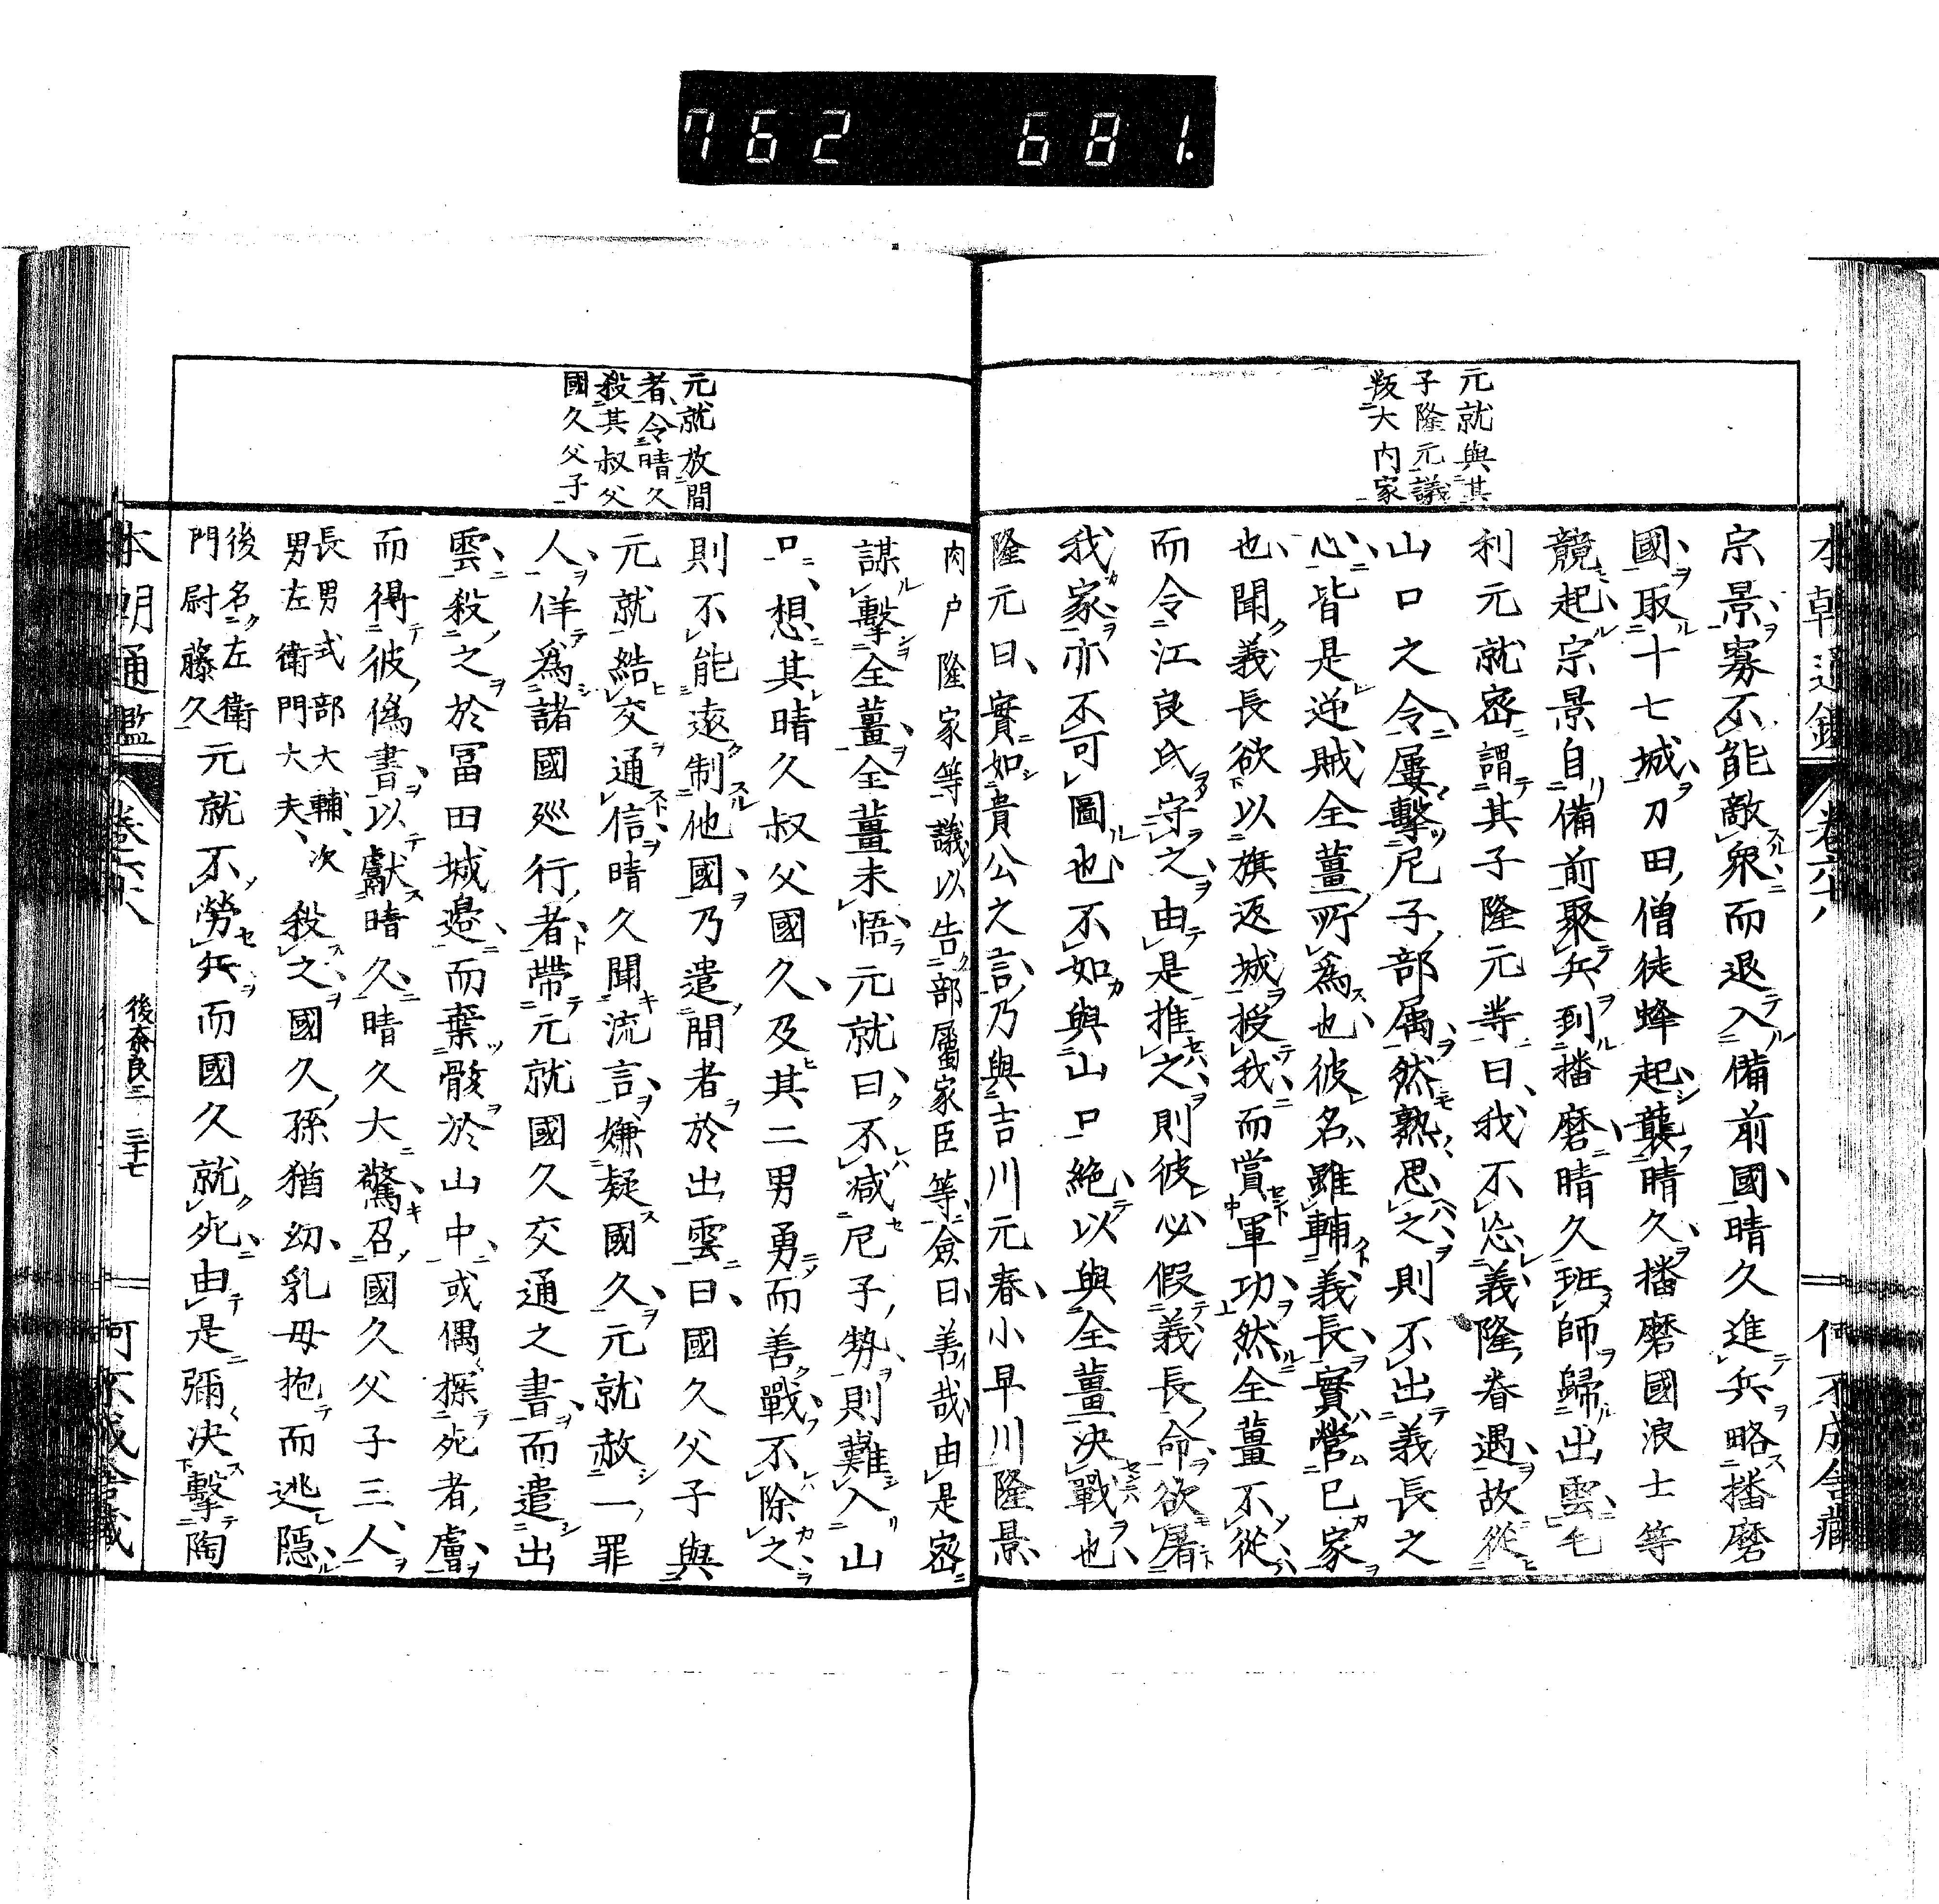 762 681.
元就與其
子隆元議
叛大内家
宗景寡不能敵衆而退入備前國晴久進兵略播磨
國取十七城刀田僧徒蜂起襲晴久播磨國浪士等
競起宗景自備前聚兵到播磨晴久班師歸出雲毛
利元就密謂其子隆元等曰我不忘義隆眷遇故從
山口之令屢擊尼子部属然熟思之則不出義長之
心皆是逆賊全薑所爲也彼名雖輔義長實營己家
也聞義長欲以旗返城授我而賞軍功然全薑不從
而令江良氏守之由是推之則彼必假義長命欲屠
我家亦不可圖也不如與山口絶以與全薑決戰也
隆元曰實如貴公之言乃與吉川元春小早川隆景
本朝通鑑 卷六十八
元就放間
者令晴久
殺其叔父
國久父子
肉户隆家等議以告部屬家臣等僉曰善哉由是密
謀擊全薑全薑未悟元就曰不减尼子勢則難入山
口想其晴久叔父國久及其二男勇而善戰不除之
則不能遠制他國乃遣間者於出雲曰國久父子與
元就結交通信晴久聞流言嫌疑國久元就赦一罪
人佯爲諸國巡行者帶元就國久交通之書而遣出
雲殺之於冨田城邉而棄骸於山中或偶探死者膚
而得彼僞書以獻晴久晴久大驚召國久父子三人
長男式部大輔次
男左衛門大夫
殺之國久孫猶幼乳母抱而逃隱
後名左衛
門尉藤久
元就不勞兵而國久就死由是彌决擊陶
本朝通鑑 卷六十八 後奈良三 三十七